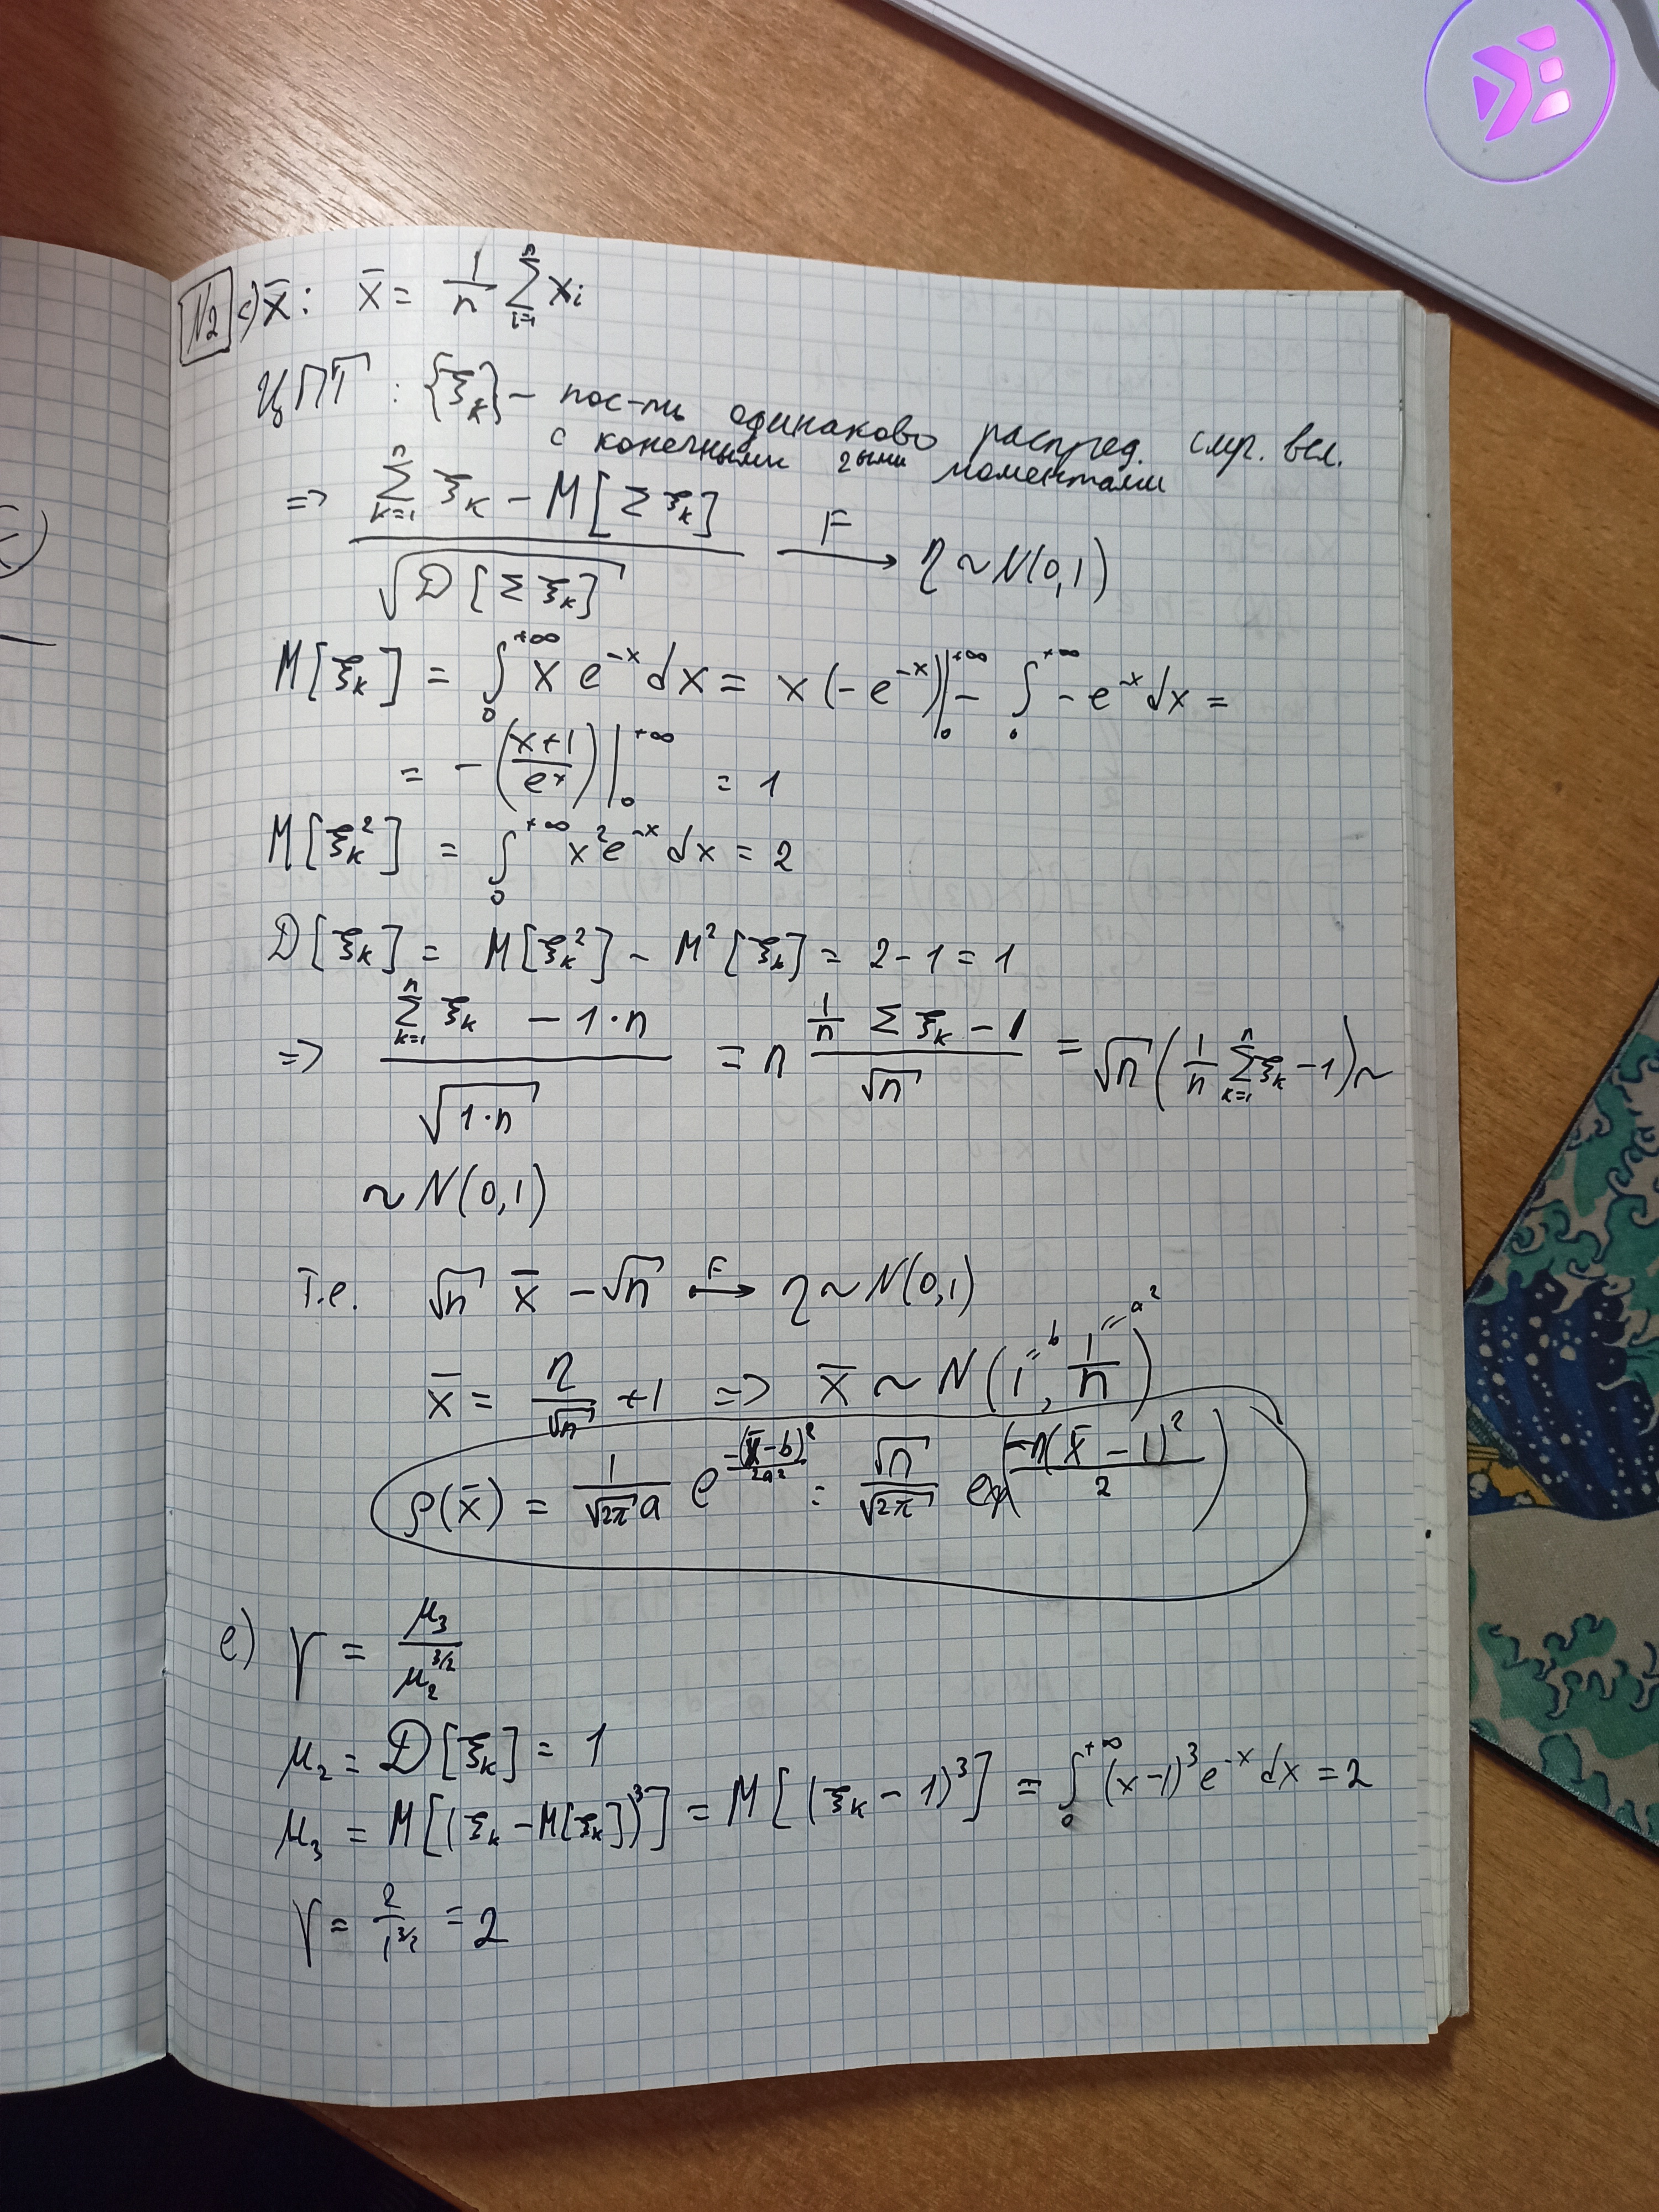 №2 c) x̄ : x̄ = 1/n ∑_{i=1}^{n} x_i
ЦПТ : {ξ_k} – пос-ть одинаково распред. случ. вел.
с конечными 2ыми моментами
=> (∑_{k=1}^{n} ξ_k – M[∑ ξ_k]) / √(D[∑ ξ_k]) —F→ η ~ N(0,1)
M[ξ_k] = ∫_0^{+∞} x e^{-x} dx = x(-e^{-x})|_0^{+∞} – ∫_0^{+∞} -e^{-x} dx =
= -((x+1)/e^x)|_0^{+∞} = 1
M[ξ_k^2] = ∫_0^{+∞} x^2 e^{-x} dx = 2
D[ξ_k] = M[ξ_k^2] – M^2[ξ_k] = 2-1 = 1
=> (∑_{k=1}^{n} ξ_k – 1·n) / √(1·n) = n (1/n ∑ ξ_k – 1) / √n = √n (1/n ∑_{k=1}^{n} ξ_k – 1) ~
~ N(0,1)
т.е. √n x̄ – √n —F→ η ~ N(0,1)
x̄ = η/√n + 1 => x̄ ~ N(1^{=b}, 1/n^{=a^2})
ρ(x̄) = 1/(√(2π) a) e^{-(x̄-b)^2/(2a^2)} = √n/√(2π) exp(-n(x̄-1)^2/2)
e) γ = μ_3 / μ_2^{3/2}
μ_2 = D[ξ_k] = 1
μ_3 = M[(ξ_k – M[ξ_k])^3] = M[(ξ_k – 1)^3] = ∫_0^{+∞} (x-1)^3 e^{-x} dx = 2
γ = 2/1^{3/2} = 2